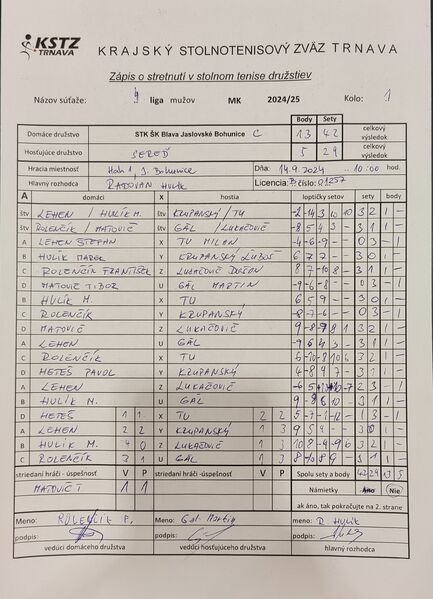 KSTZ
TRNAVA
KRAJSKÝ STOLNOTENISOVÝ ZVÄZ TRNAVA
Zápis o stretnutí v stolnom tenise družstiev
Názov súťaže: liga mužov MK 2024/25 Kolo: 1
Body Sety
Domáce družstvo STK ŠK Blava Jaslovské Bohunice C 13 42 celkový výsledok
Hosťujúce družstvo SEREĎ 5 29 celkový výsledok
Hracia miestnosť J. Bohunice Dňa: 14.9.2024 10:00 hod.
Hlavný rozhodca RADOVAN HULÍK Licencia: číslo:
A domáci X hostia loptičky setov sety body
štv LEHEN / HULÍK M. štv KRUPANSKÝ / TU 3 2 1 -
štv ROLENČÍK / MAŤOVIČ štv GÁL / LUKAČOVIČ -8 5 4 5 - 3 1 1 -
A LEHEN ŠTEPHN X TU MILAN -4 -6 -9 - - 0 3 - 1
B HULÍK MAREK Y KRUPANSKÝ ĽUBOŠ 6 7 7 - - 3 0 1 -
C ROLENČÍK FRANTIŠEK Z LUKAČOVIČ DUŠAN 8 7 -10 8 - 3 1 1 -
D MAŤOVIČ TIBOR U GÁL MARTIN -9 -6 -8 - - 0 3 - 1
B HULÍK M. X TU 6 5 9 - - 3 0 1 -
C ROLENČÍK Y KRUPANSKÝ -8 -7 -6 - - 0 3 - 1
D MAŤOVIČ Z LUKAČOVIČ 3 2 1 -
A LEHEN U GÁL -9 6 4 3 - 3 1 1 -
C ROLENČÍK X TU 3 2 1 -
D HETEŠ PAVOL Y KRUPANSKÝ 3 1 1 -
A LEHEN Z LUKAČOVIČ 2 3 - 1
B HULÍK M. U GÁL 3 1 1 -
D HETEŠ 1 1 X TU 2 2 5 -7 -1 -12 - 1 3 - 1
A LEHEN 2 2 Y KRUPANSKÝ 1 3 9 5 4 - - 3 0 1 -
B HULÍK M. 4 0 Z LUKAČOVIČ 1 3 10 8 -4 -9 6 3 2 1 -
C ROLENČÍK 3 1 U GÁL 1 3 3 1 1 -
striedaní hráči -úspešnosť V P striedaní hráči -úspešnosť V P Spolu sety a body 42 29 13 5
MAŤOVIČ T 1 1 Námietky Áno Nie
ak áno, tak pokračujte na 2. strane
Meno: ROLENČÍK F. Meno: Gál Martin Meno: R. Hulík
podpis: podpis: podpis:
vedúci domáceho družstva vedúci hosťujúceho družstva hlavný rozhodca